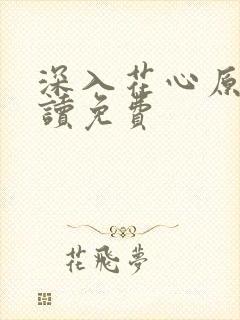 深入花心原
讀免費
花飛夢